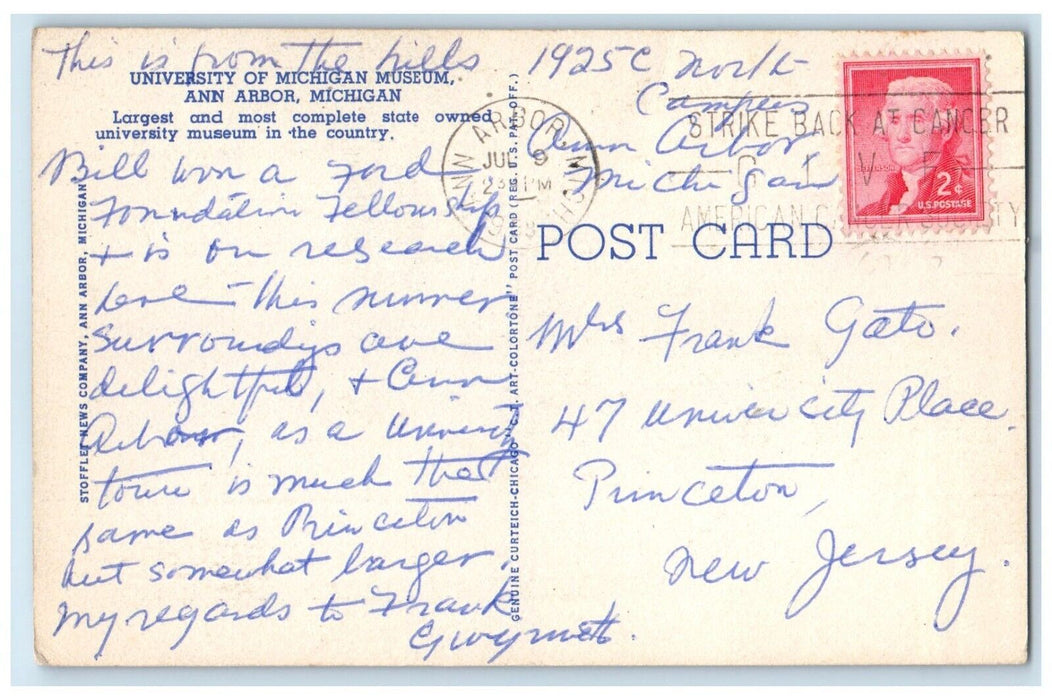 This is from the hills
UNIVERSITY OF MICHIGAN MUSEUM,
ANN ARBOR, MICHIGAN
Largest and most complete state owned
university museum in the country.
Bill won a Ford
Foundation Fellowship
+ is on research
here - this summer
surroundings are
delightful, + Ann
Arbour, as a University
town is much the
same as Princeton
but somewhat larger.
My regards to Frank
Gwyneth.
STOFFLET NEWS COMPANY, ANN ARBOR, MICHIGAN
GENUINE CURTEICH-CHICAGO "C.T. ART-COLORTONE" POST CARD (REG. U.S. PAT. OFF.)
1925C North
Campus
Ann Arbor
Michigan
ANN ARBOR, MICH
JUL 9
PM
STRIKE BACK AT CANCER
GIVE
AMERICAN CANCER SOCIETY
2¢
U.S. POSTAGE
POST CARD
Mrs Frank Gato.
47 University Place.
Princeton,
New Jersey.